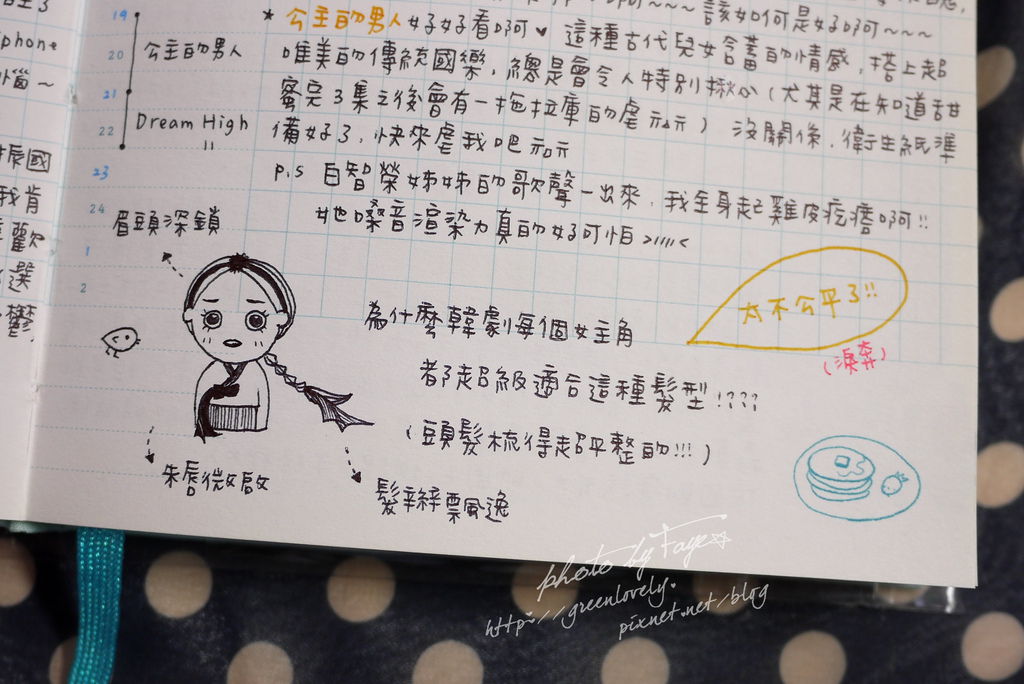 19
20
21
22
23
24
1
2
公主的男人
Dream High
"
iphone
惱～
振國
我肯
歡
選
鬱,
～～～該如何是好啊～～～
★ 公主的男人 好好看啊♥ 這種古代兒女含蓄的情感，搭上超
唯美的傳統國樂，總是會令人特別揪心（尤其是在知道甜
蜜完3集之後會有一拖拉庫的虐 ㄦㄦ）沒關係，衛生紙準
備好了，快來虐我吧 ㄦㄦ
p.s 白智榮姊姊的歌聲一出來，我全身起雞皮疙瘩啊!!
她嗓音渲染力真的好可怕 >///<
眉頭深鎖
朱唇微啟
髮辮飄逸
為什麼韓劇每個女主角
都超級適合這種髮型!???
（頭髮梳得超平整的!!!）
太不公平了!!
（淚奔）
photo by Faye☆
http://greenlovely.
pixnet.net/blog